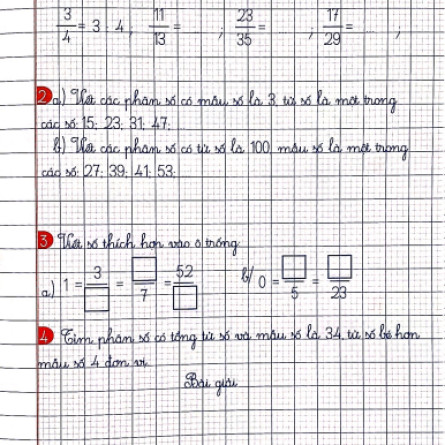 3/4 = 3 : 4 ; 11/13 = ; 23/35 = ; 17/29 = ;
2 a) Viết các phân số có mẫu số là 3, tử số là một trong
các số: 15; 23; 31; 47;
b) Viết các phân số có tử số là 100, mẫu số là một trong
các số: 27; 39; 41; 53;
3 Viết số thích hợp vào ô trống
a) 1 = 3/□ = □/7 = 52/□ b/ 0 = □/5 = □/23
4 Tìm phân số có tổng tử số và mẫu số là 34, tử số bé hơn
mẫu số 4 đơn vị
Bài giải